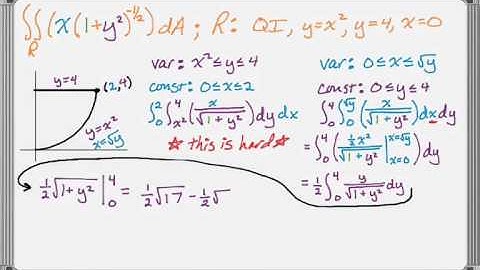 ∬_R (x(1+y²)^(-1/2)) dA ; R: QI, y=x², y=4, x=0
y=4
(2,4)
y=x²
x=√y
var: x²≤y≤4
const: 0≤x≤2
∫_0^2 ∫_{x²}^4 (x/√(1+y²)) dy dx
☆ this is hard ☆
var: 0≤x≤√y
const: 0≤y≤4
∫_0^4 ∫_0^{√y} (x/√(1+y²)) dx dy
= ∫_0^4 (½x²/√(1+y²) |_{x=0}^{x=√y}) dy
= ½ ∫_0^4 y/√(1+y²) dy
½√(1+y²) |_0^4 = ½√17 - ½√